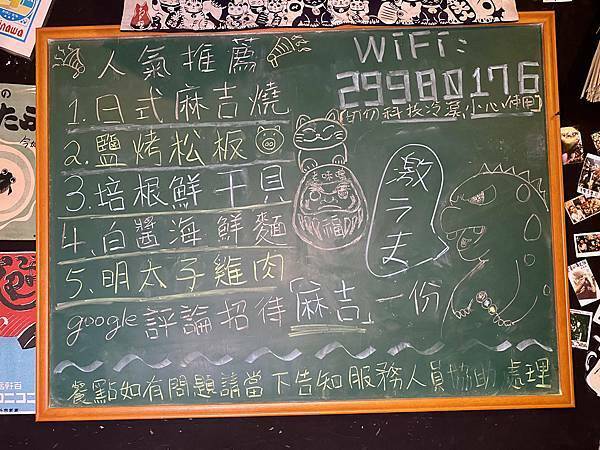 人氣推薦
1.日式麻吉燒
2.鹽烤松板
3.培根鮮干貝
4.白醬海鮮麵
5.明太子雞肉
google評論招待「麻吉」一份
餐點如有問題請當下告知服務人員協助處理
WiFi:
29980176
小心使用
激ㄋ丈
福